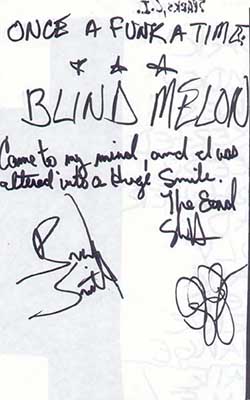 ONCE A FUNK A TIME
BLIND MELON
Came to my mind, and I was
altered into a Huge Smile.
The
Brad
Smith